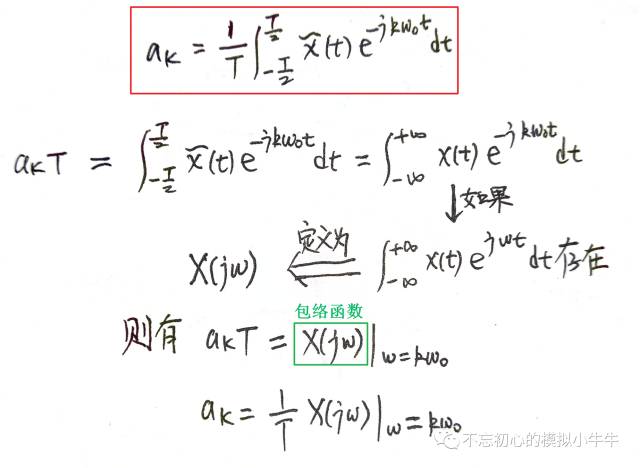 aₖ = 1/T ∫_{-T/2}^{T/2} x̃(t) e^{-jkω₀t} dt
aₖT = ∫_{-T/2}^{T/2} x̃(t) e^{-jkω₀t} dt = ∫_{-∞}^{+∞} x(t) e^{-jkω₀t} dt
↓ 如果
X(jω) ⇐ 定义为 ∫_{-∞}^{+∞} x(t) e^{jωt} dt 存在
包络函数
则有 aₖT = X(jω)|_{ω=kω₀}
aₖ = 1/T X(jω)|_{ω=kω₀}
不忘初心的模拟小牛牛